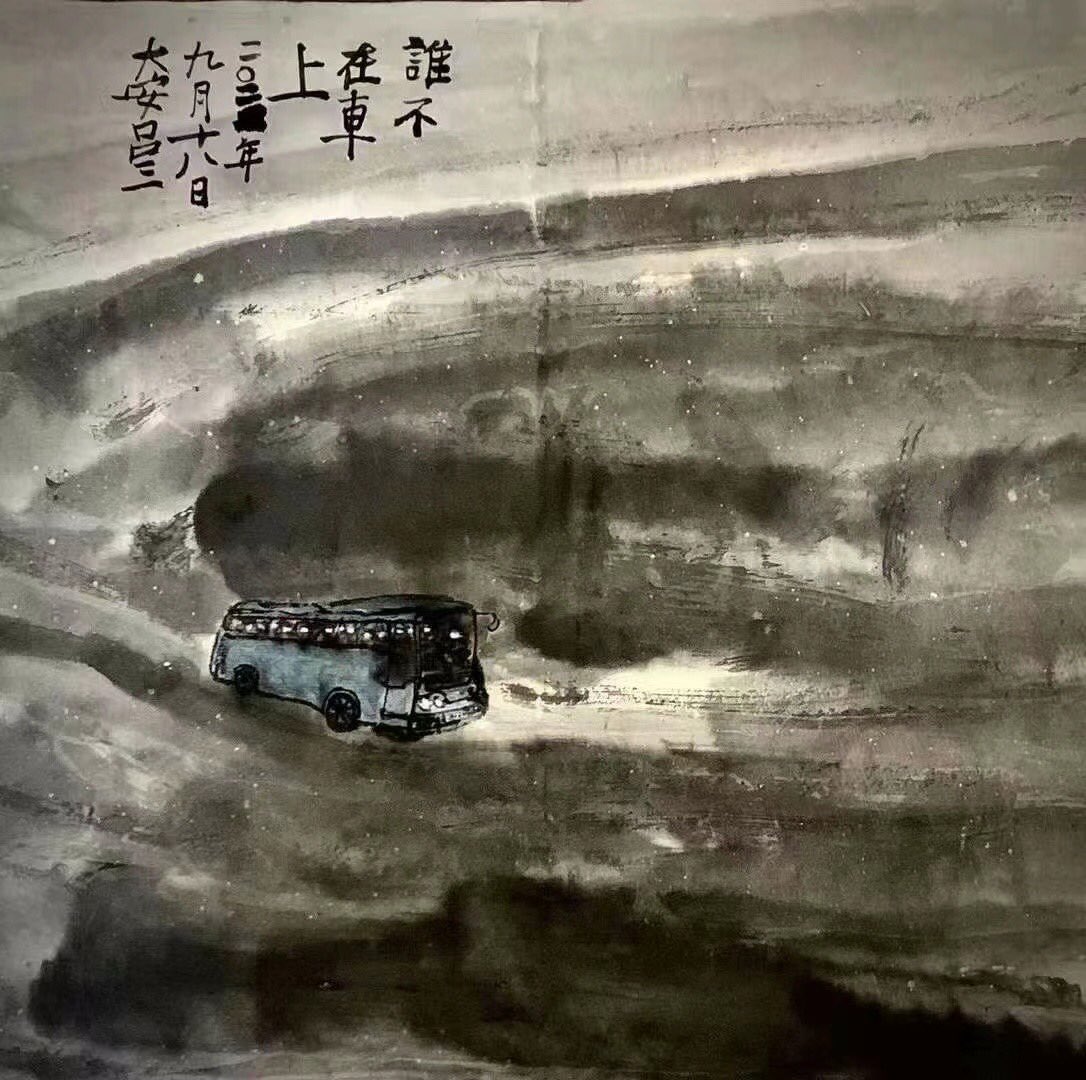 誰不
在車
上
二〇二二年
九月十八日
大安呂三